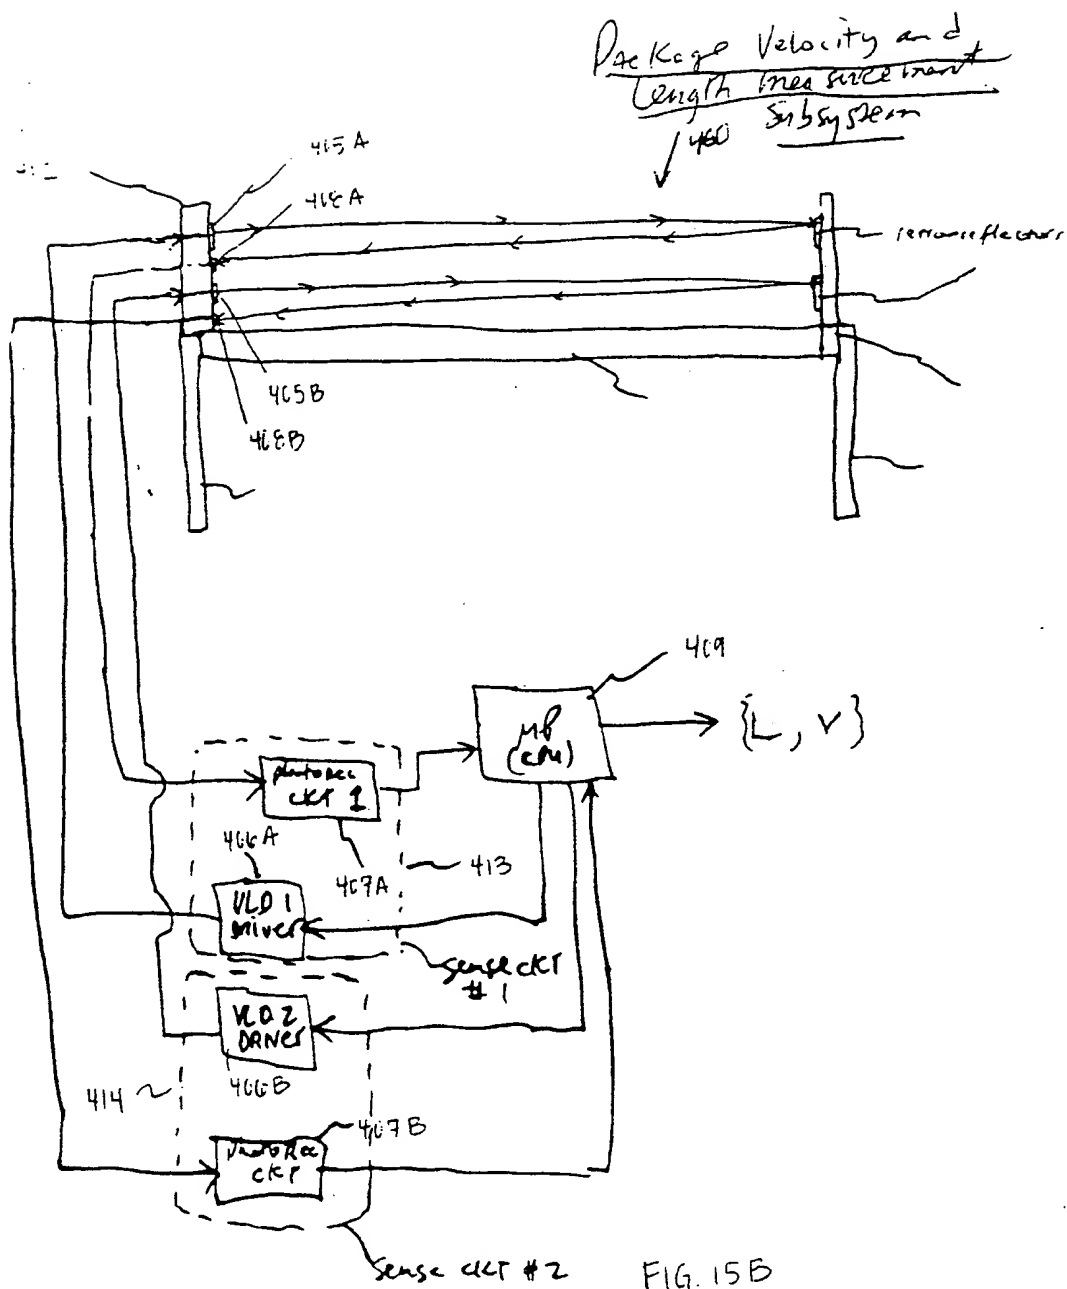 Package Velocity and
Length Measurement
Subsystem
460
465A
468A
retroreflectors
465B
468B
469
μP
(CPU)
{L, V}
photorec
ckt 1
466A
467A
413
VLD 1
Driver
sense ckt
# 1
VLD 2
DRIVER
466B
414
467B
photorec
ckt
Sense ckt #2
FIG. 15B